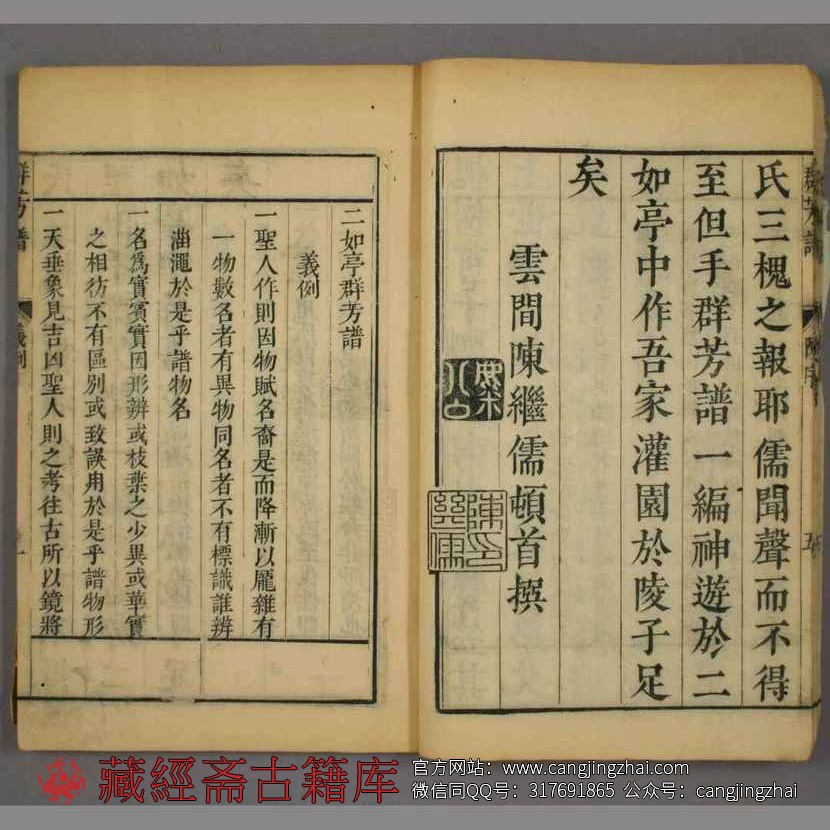 氏三槐之報耶儒聞聲而不得
至但手群芳譜一編神遊於二
如亭中作吾家灌園於陵子足
矣
雲間陳繼儒頓首撰
二如亭群芳譜
義例
一聖人作則因物賦名裔是而降漸以龐雜有
一物數名者有異物同名者不有標識誰辨
淄澠於是乎譜物名
一名爲實賓實因形辨或枝葉之少異或華實
之相彷不有區别或致誤用於是乎譜物形
一天垂象見吉凶聖人則之考往古所以鏡將
群芳譜
義例
藏經斋古籍库
官方网站：www.cangjingzhai.com
微信同QQ号：317691865 公众号：cangjingzhai